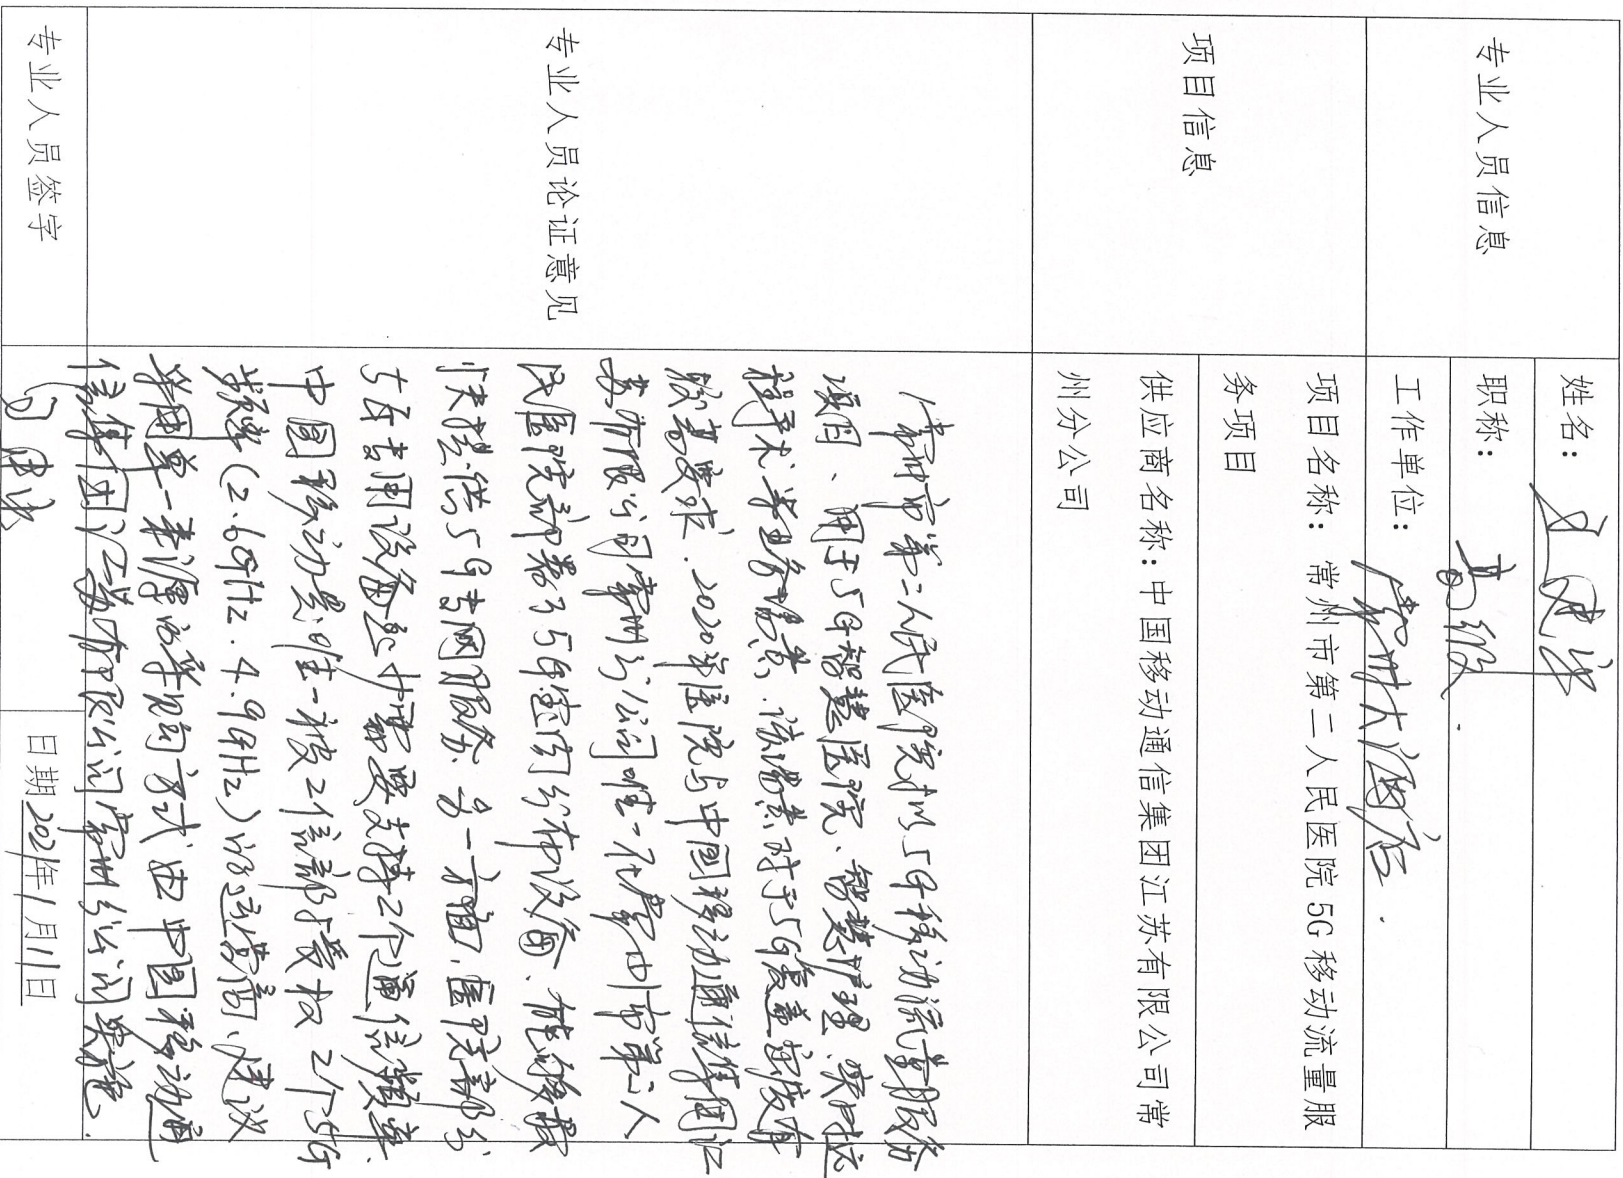 专业人员信息
姓名：
职称：高级
工作单位：常州大酒店
项目信息
项目名称：常州市第二人民医院 5G 移动流量服
务项目
供应商名称：中国移动通信集团江苏有限公司常
州分公司
专业人员论证意见
常州市第二人民医院拟以5G移动流量服务
项目、用于5G智慧医院、智慧护理、实时远
程手术等业务场景，该场景对于5G覆盖密度有
较高要求.2020年医院与中国移动通信集团江
苏有限公司常州分公司唯一在常州市第二人
民医院部署了5G室内分布设备、能够最
快提供5G专网服务.另一方面,医院部分
5G专用设备必需要支持2个通信频率.
中国移动是唯一被工信部授权2个5G
频率(2.6GHz.4.9GHz)的运营商、建议
采用单一来源的采购方式由中国移动通
信集团江苏有限公司常州分公司实施.
专业人员签字
日期2021年1月11日